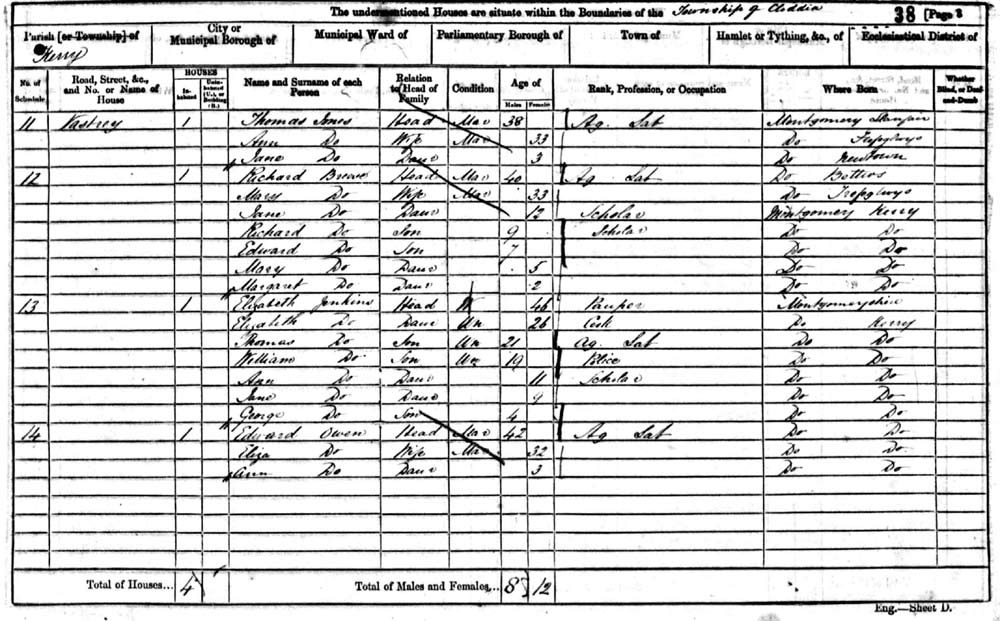 The undermentioned Houses are situate within the Boundaries of the Township of Cliddia 38 [Page 8
Parish [or Township] of Kerry
City or Municipal Borough of
Municipal Ward of
Parliamentary Borough of
Town of
Hamlet or Tything, &c., of
Ecclesiastical District of
No. of Schedule
Road, Street, &c., and No. or Name of House
HOUSES
In-habited
Unin-habited (U.), or Building (B.)
Name and Surname of each Person
Relation to Head of Family
Condition
Age of
Males
Females
Rank, Profession, or Occupation
Where Born
Whether Blind, or Deaf-and-Dumb
11 Vastrey 1 Thomas Jones Head Mar 38 Ag. Lab Montgomery
Ann Do Wife Mar 33 Do
Jane Do Daur 3 Do Newtown
12 1 Richard Head Mar 40 Ag Lab Do Bettws
Mary Do Wife Mar 33 Do
Jane Do Daur 12 Scholar Montgomery Kerry
Richard Do Son 9 Scholar Do Do
Edward Do Son 7 Do Do
Mary Do Daur 5 Do Do
Margaret Do Daur 2 Do Do
13 1 Elizabeth Jenkins Head W 46 Pauper Montgomeryshire
Elizabeth Do Daur Un 26 Do Kerry
Thomas Do Son Un 21 Ag. Lab Do Do
William Do Son Un 19 Do Do
Ann Do Daur 11 Scholar Do Do
Jane Do Daur 9 Do Do
George Do Son 4 Do Do
14 1 Edward Owen Head Mar 42 Ag Lab Do Do
Eliza Do Wife Mar 32 Do Do
Ann Do Daur 3 Do Do
Total of Houses... 4 Total of Males and Females... 8 12
Eng.—Sheet D.